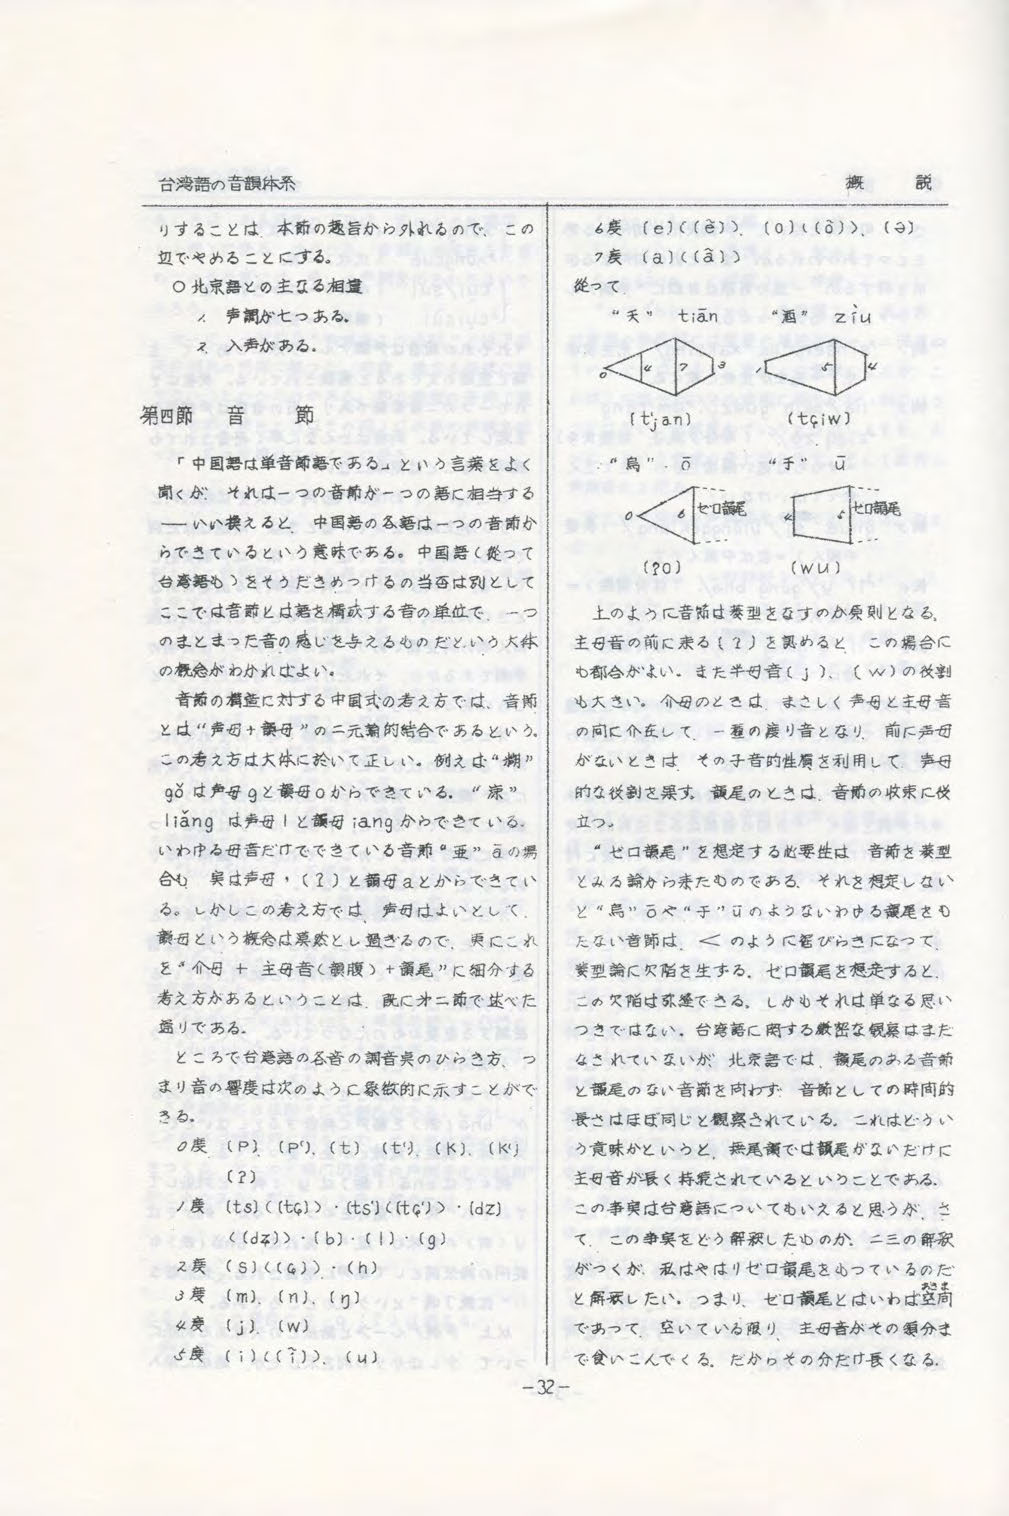 台湾語の音韻体系
概　説
りすることは、本節の趣旨から外れるので、この
辺でやめることにする。
〇北京語との主なる相違
1. 声調が七つある。
2. 入声がある。
第四節　音　節
「中国語は単音節語である」という言葉をよく
聞くが、それは一つの音節が一つの語に相当する
——いい換えると、中国語の各語は一つの音節か
らできているという意味である。中国語(従って
台湾語も)をそうだときめつけるの当否は別として
ここでは音節とは語を構成する音の単位で、一つ
のまとまった音の感じを与えるものだという大体
の概念がわかればよい。
音節の構造に対する中国式の考え方では、音節
とは“声母+韻母”の二元論的結合であるという。
この考え方は大体に於いて正しい。例えば“糊”
gǒ は声母gと韻母oからできている。“涼”
liǎng は声母lと韻母iangからできている。
いわゆる母音だけでできている音節“亜”āの場
合も、実は声母'(ʔ)と韻母aとからできてい
る。しかしこの考え方では、声母はよいとして、
韻母という概念は漠然とし過ぎるので、更にこれ
を“介母 + 主母音(韻腹)+韻尾”に細分する
考え方があるということは、既に才二節で述べた
通りである。
ところで台湾語の各音の調音点のひらき方、つ
まり音の響度は次のように象徴的に示すことがで
きる。
0度 (P)、(P')、(t)、(t')、(K)、(K')
(ʔ)
1度 (ts)((tɕ))・(ts')((tɕ'))・(dz)
((dʑ))・(b)・(l)・(g)
2度 (S)((ɕ))・(h)
3度 (m)、(n)、(ŋ)
4度 (j)、(w)
5度 (i)((ĩ))、(u)
6度 (e)((ẽ))、(o)((õ))、(ə)
7度 (a)((ã))
従って、
“天” tiān　“酒” zìu
0 4 7 3　1 5 4
(t'jan)　(tɕiw)
“烏” ō　“于” ū
0 6 ゼロ韻尾　4 5 ゼロ韻尾
(ʔo)　(wu)
上のように音節は菱型をなすのが原則となる。
主母音の前に来る(ʔ)を認めると、この場合に
も都合がよい。また半母音(j)、(w)の役割
も大きい。介母のときは、まさしく声母と主母音
の間に介在して、一種の渡り音となり、前に声母
がないときは、その子音的性質を利用して、声母
的な役割を果す。韻尾のときは、音節の収束に役
立つ。
“ゼロ韻尾”を想定する必要性は、音節を菱型
とみる論から来たものである。それを想定しない
と“烏”ōや“于”ūのようないわゆる韻尾をも
たない音節は、＜ のように尻びらきになって、
菱型論に欠陥を生ずる。ゼロ韻尾を想定すると、
この欠陥は弥縫できる。しかもそれは単なる思い
つきではない。台湾語に関する厳密な観察はまだ
なされていないが、北京語では、韻尾のある音節
と韻尾のない音節を問わず、音節としての時間的
長さはほぼ同じと観察されている。これはどうい
う意味かというと、無尾韻では韻尾がないだけに
主母音が長く持続されているということである。
この事実は台湾語についてもいえると思うが、さ
て、この事実をどう解釈したものか。二三の解釈
がつくが、私はやはりゼロ韻尾をもっているのだ
と解釈したい。つまり、ゼロ韻尾とはいわば空間
であって、空いている限り、主母音がその領分ま
で食いこんでくる。だからその分だけ長くなる。
-32-